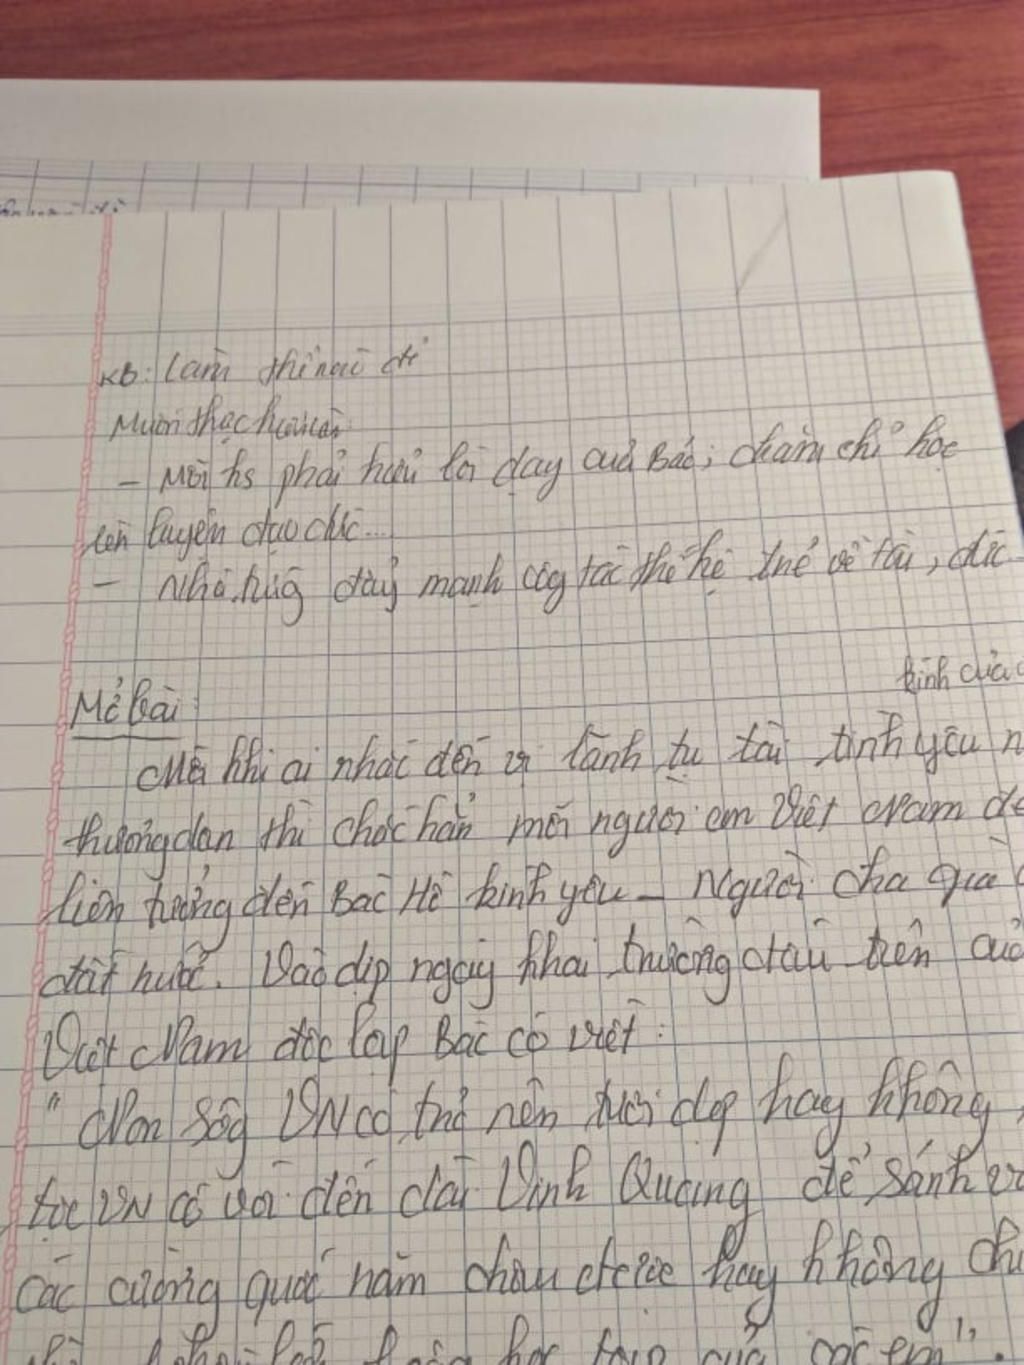 KB: Làm thế nào để
Muốn thực hiện
- Mỗi hs phải hiểu lời dạy của Bác; chăm chỉ học
rèn luyện đạo đức...
- Nhà.trg đẩy mạnh côg tác thế hệ trẻ về tài, đức
kính của
Mở bài:
Mỗi khi ai nhắc đến vị lãnh tụ tài tình yêu n
thương dân thì chắc hẳn mỗi người em Việt Nam đề
liên tưởng đến Bác Hồ kính yêu - Người cha già
đất nước. Vào dịp ngày khai trường đầu tiên củ
Việt Nam độc lập Bác có viết:
" Non sôg VN có trở nên tươi đẹp hay không,
tộc VN có với đến đài Vinh Quang để sánh v
các cường quốc năm châu được hay không ch
học tập của các em".